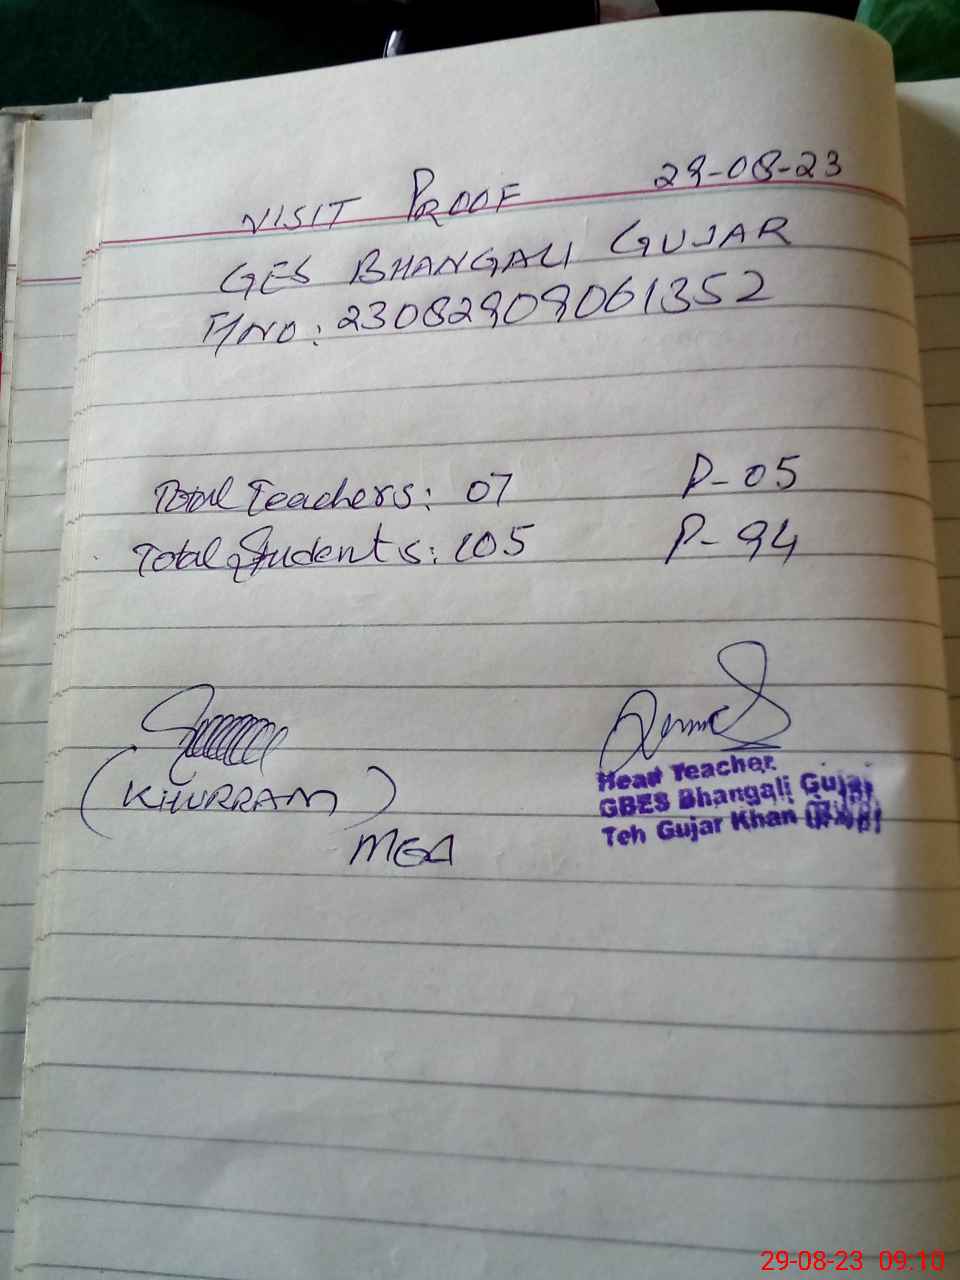 VISIT PROOF 29-08-23
GES BHANGALI GUJAR
F/NO: 23082909061352
Total Teachers: 07 P-05
Total Students: 105 P-94
(KHURRAM)
MEA
Head Teacher
GBES Bhangali Gujar
Teh Gujar Khan
29-08-23 09:10